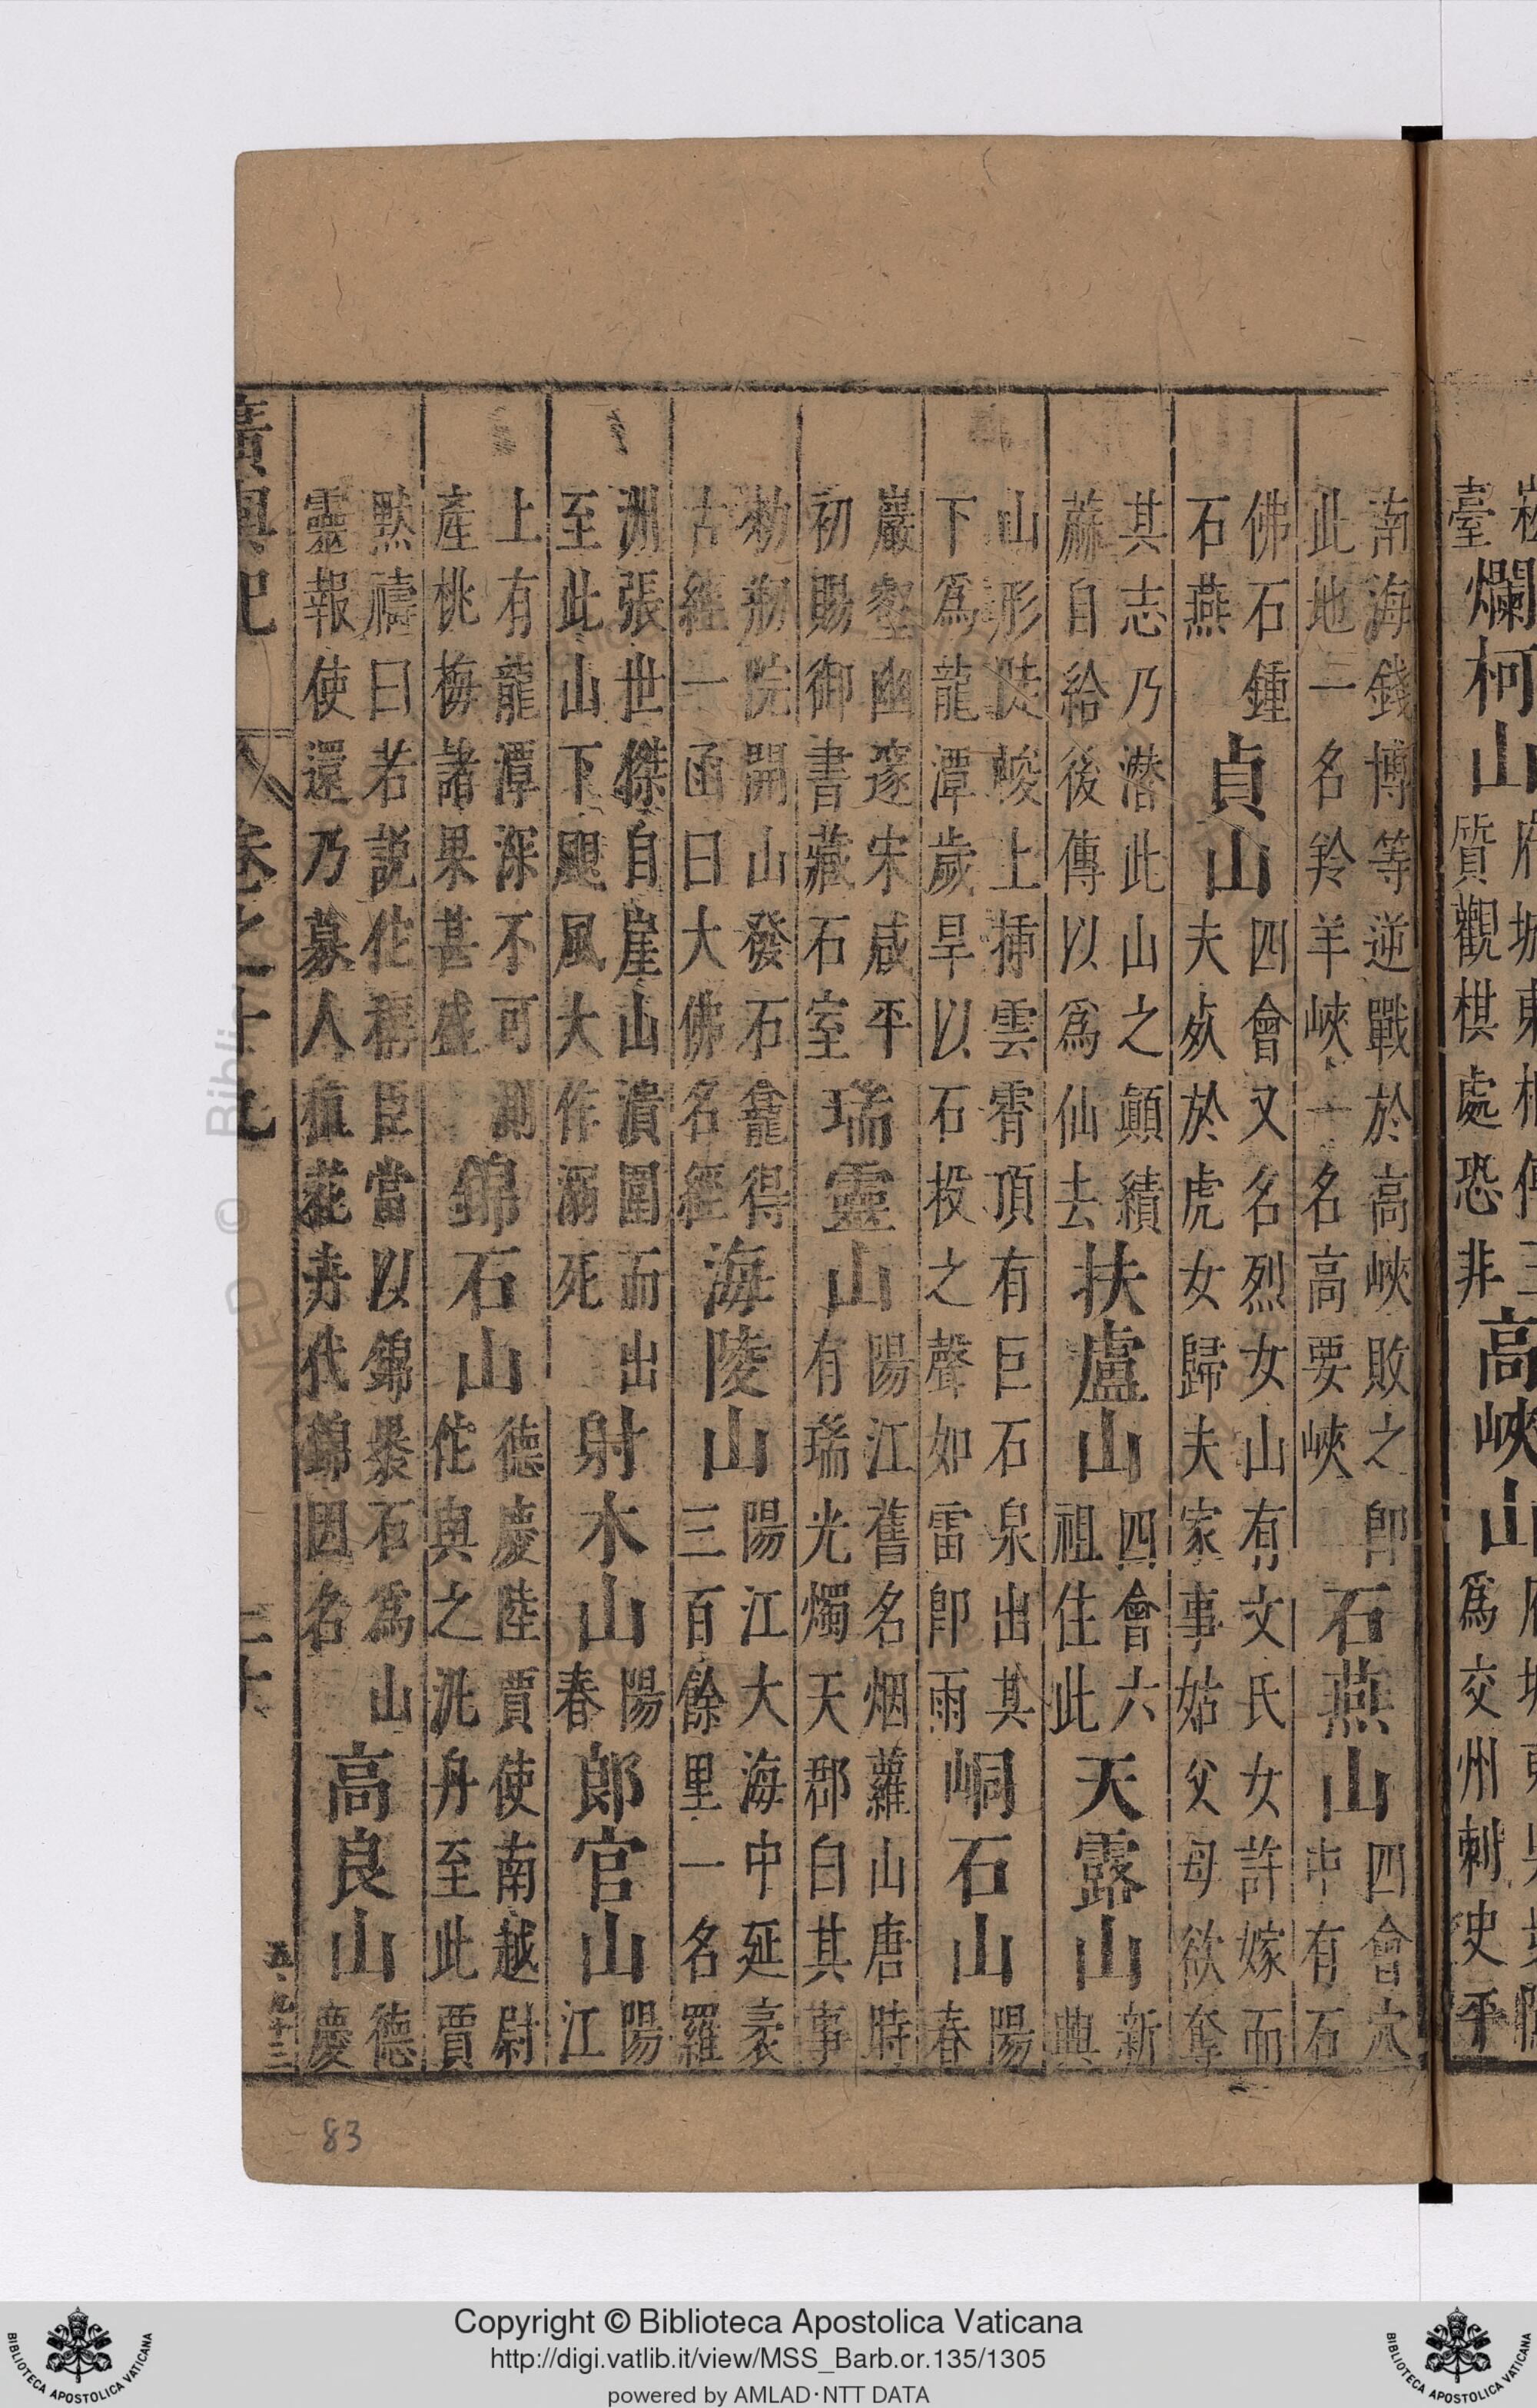 臺
爛柯山
質觀棋處恐非
高峽山
爲交州刺史平
南海錢博等逆戰於高峽敗之卽
此地一名羚羊峽一名高要峽
石燕山
四會穴
中有石
佛石鍾
石燕
貞山
四會又名烈女山有文氏女許嫁而
夫死於虎女歸夫家事姑父母欲奪
其志乃潛此山之顛績
蔴自給後傳以爲仙去
扶盧山
四會六
祖住此
天露山
新
興
山形陡峻上揷雲霄頂有巨石泉出其
下爲龍潭歲旱以石投之聲如雷卽雨
峒石山
陽
春
巖壑幽邃宋咸平
初賜御書藏石室
瑞靈山
陽江舊名烟蘿山唐時
有瑞光燭天郡白其事
勑剏院開山發石龕得
古經一函曰大佛名經
海陵山
陽江大海中延袤
三百餘里一名羅
洲張世傑自崖山潰圍而出
至此山下颶風大作溺死
射木山
陽
春
郎官山
陽
江
上有龍潭深不可測
產桃梅諸果甚盛
錦石山
德慶陸賈使南越尉
佗與之泛舟至此賈
默禱曰若説佗稱臣當以錦褁石爲山
靈報使還乃募人植花卉代錦因名
高良山
德
慶
廣輿記
卷之十九
83
Copyright © Biblioteca Apostolica Vaticana
http://digi.vatlib.it/view/MSS_Barb.or.135/1305
powered by AMLAD·NTT DATA
BIBLIOTECA APOSTOLICA VATICANA
BIBLIOTECA APOSTOLICA VATICANA